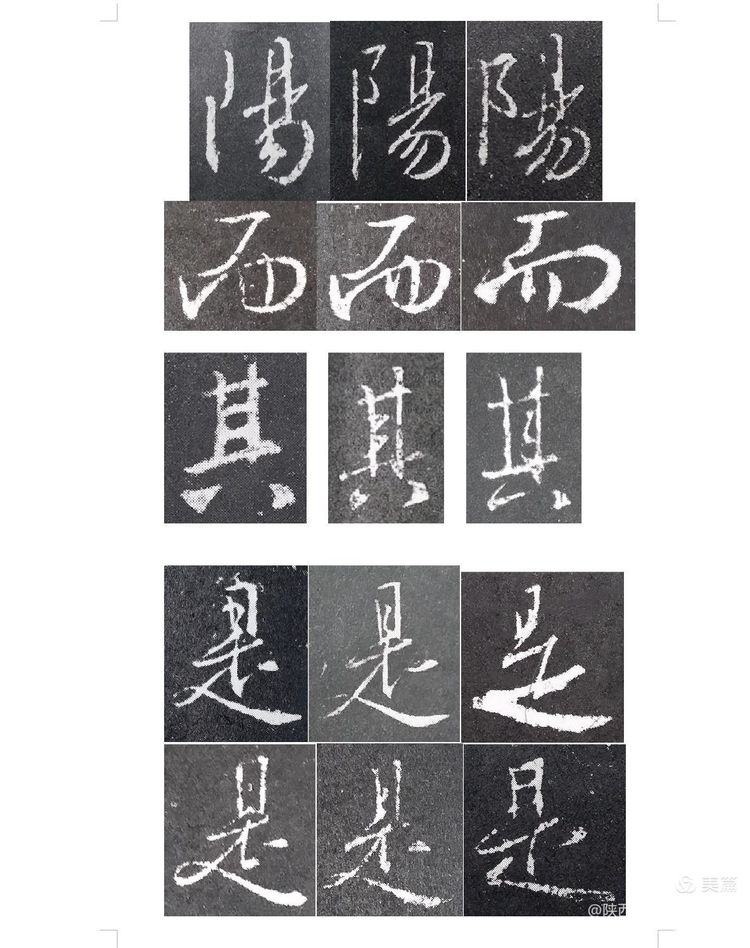 陽 陽 陽
而 而 而
其 其 其
是 是 是
是 是 是
美篇
@陕西